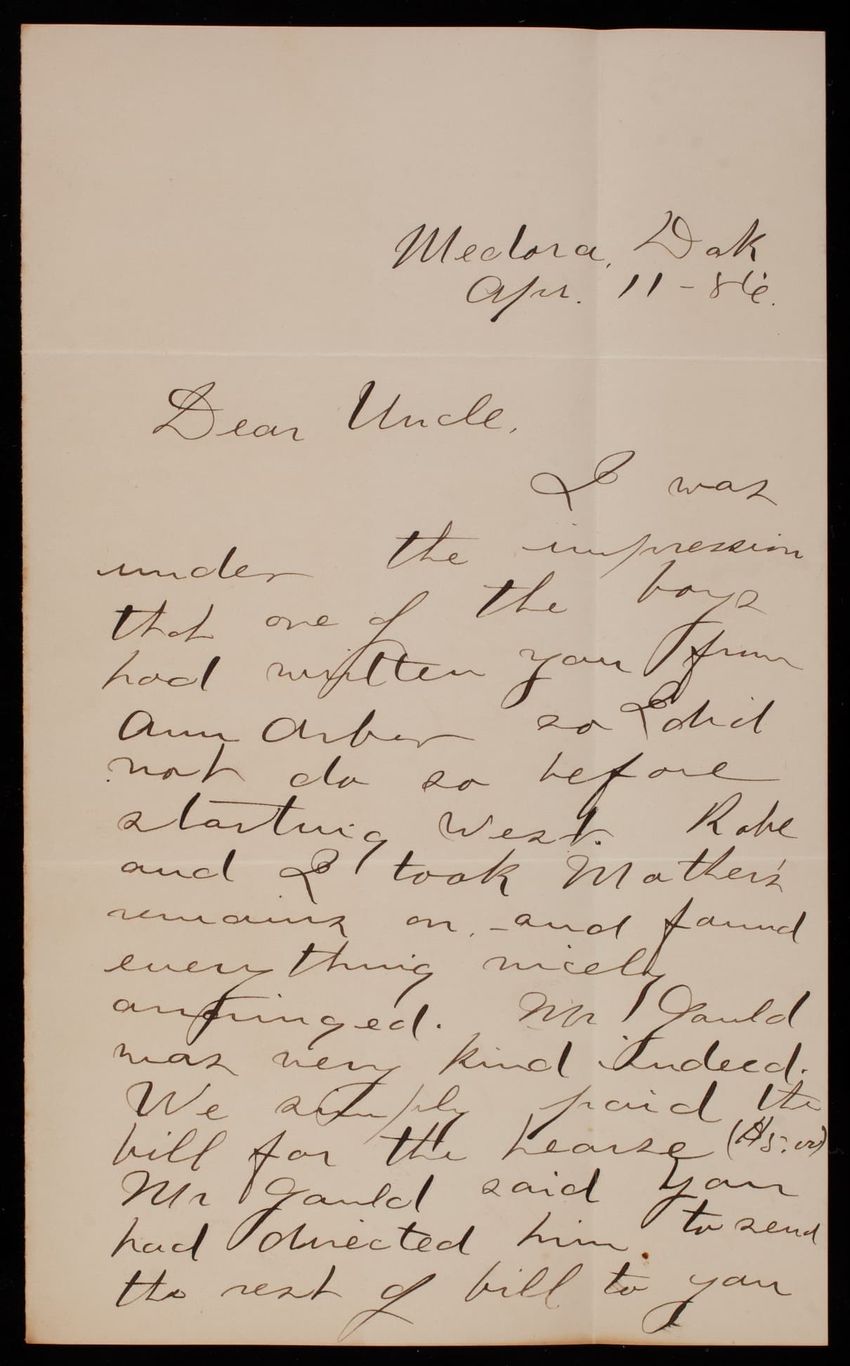 Medora, Dak
Apr. 11 - 86.
Dear Uncle,
I was
under the impression
that one of the boys
had written you from
Ann Arbor so I did
not do so before
starting West. Robe
and I took Mother's
remains on, - and found
everything nicely
arringed. Mr Gauld
was very kind indeed.
We simply paid the
bill for the hearse ($5.00)
Mr Gauld said you
had directed him to send
the rest of bill to you